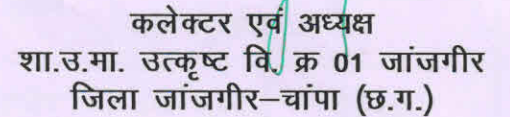 कलेक्टर एवं अध्यक्ष
शा.उ.मा. उत्कृष्ट वि. क्र 01 जांजगीर
जिला जांजगीर–चांपा (छ.ग.)